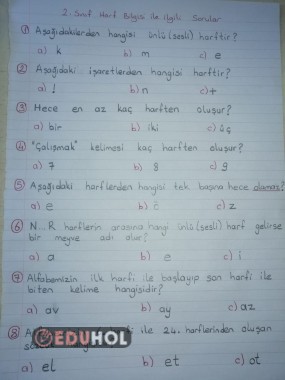 2. Sınıf Harf Bilgisi ile ilgili Sorular
① Aşağıdakilerden hangisi ünlü (sesli) harftir?
a) k b) m c) e
② Aşağıdaki işaretlerden hangisi harftir?
a) ! b) n c) +
③ Hece en az kaç harften oluşur?
a) bir b) iki c) üç
④ "Çalışmak" kelimesi kaç harften oluşur?
a) 7 b) 8 c) 9
⑤ Aşağıdaki harflerden hangisi tek başına hece olamaz?
a) e b) i c) z
⑥ N...R harflerin arasına hangi ünlü (sesli) harf gelirse
bir meyve adı olur?
a) a b) e c) i
⑦ Alfabemizin ilk harfi ile başlayıp son harfi ile
biten kelime hangisidir?
a) av b) ay c) az
EDUHOL
⑧ ile 24. harflerinden oluşan
a) el b) et c) ot